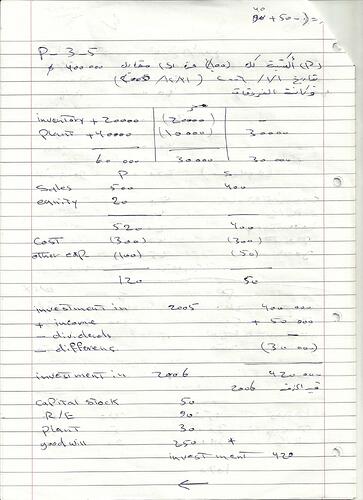 40
90 + 50 - ) = ,
P - 3 - 5
(P) من (S) مقابل 400 000 $
تاريخ 1/1
وكانت الفروقات
inventory + 20000 (20000) -
plant + 40000 (10000) 30000
60 000 30000 30 000
P S
Sales 500 400
equity 20
520 400
Cost (300) (300)
other exp (100) (50)
120 50
investment in 2005 400 000
+ income + 50 000
- dividends -
- differenc (30 000)
investment in 2006 420 000
2006
Capital stock 50
R/E 90
plant 30
good will 250 +
investment 420
←